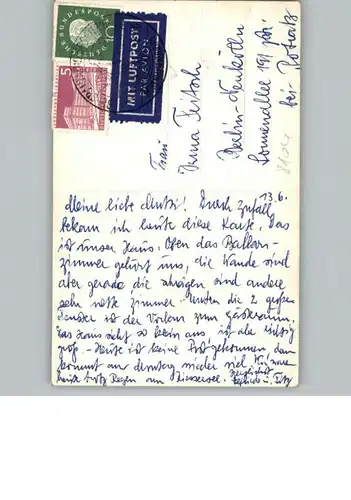 DEUTSCHE BUNDESPOST
10
5
MIT LUFTPOST
PAR AVION
Frau
Irma Teitsch
Berlin-Neukölln
Sonnenallee 191
bei
13.6.
Meine liebe Mutti! Durch Zufall
bekam ich heute diese Karte. Das
ist unser Haus. Oben das Balkon-
zimmer gehört uns, die Wände sind
aber gerade die schrägen sind andere
sehr nette Zimmer. Unten die 2 großen
Fenster ist der Vorbau zum Gastraum.
Das Haus sieht so klein aus, ist aber richtig
groß. - Heute ist keine Post gekommen, dann
kommt am Dienstag wieder viel. Wir waren
heute trotz Regen am
Herzlichst